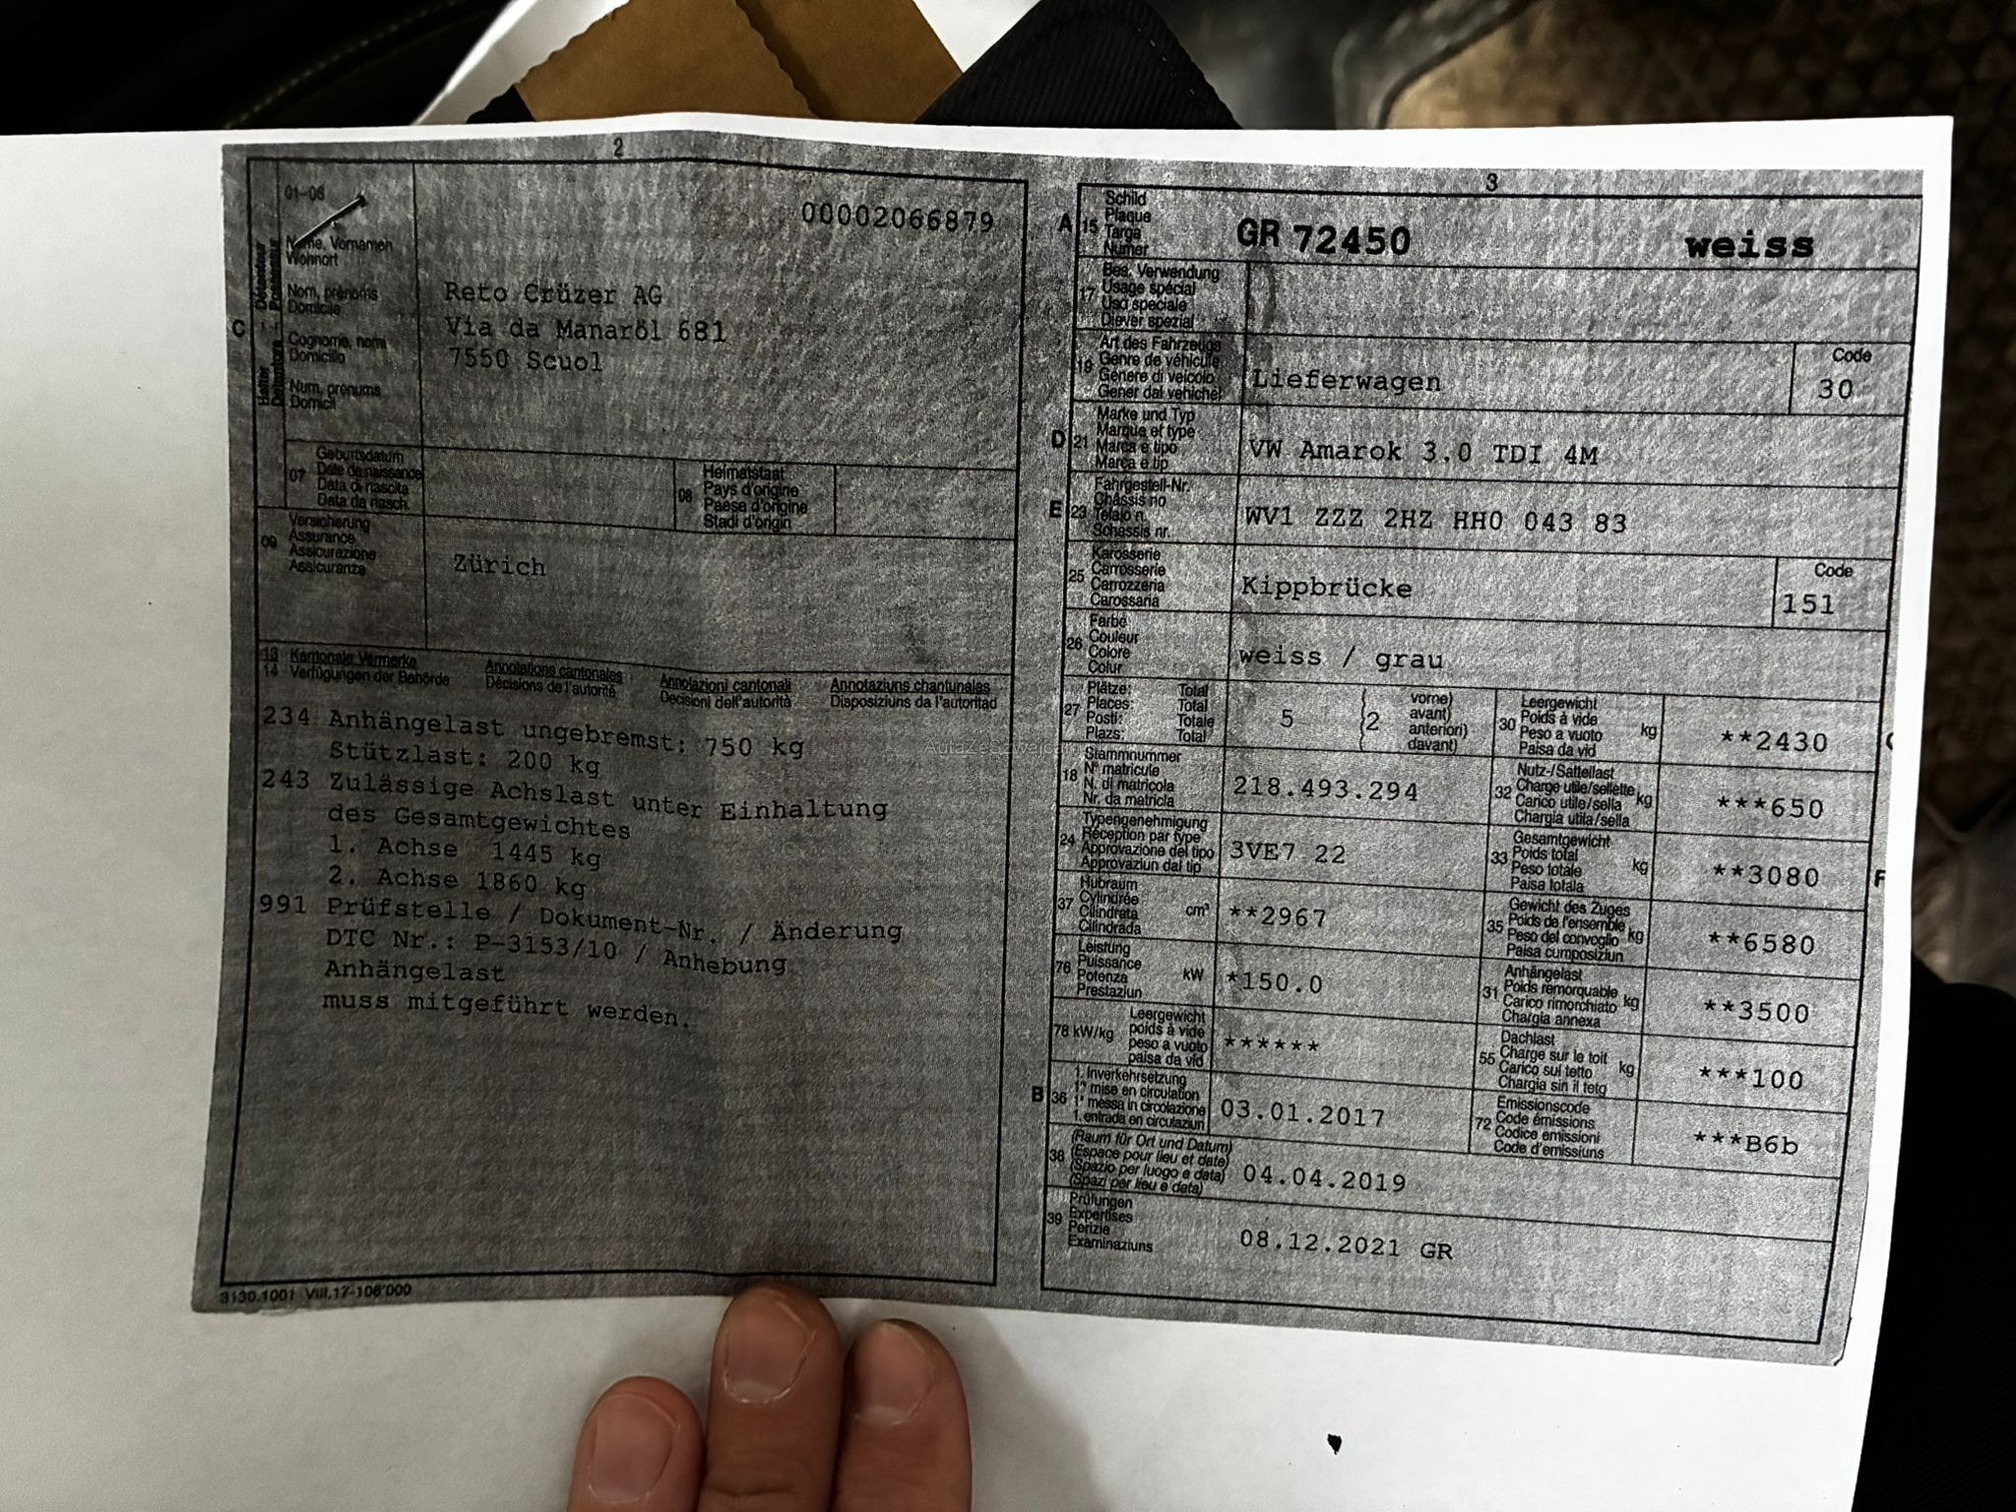 2
01-06
00002066879
Name, Vornamen
Wohnort
Nom, prénoms
Domicile
Cognome, nomi
Domicilio
Num, prenums
Domicil
C
Reto Crüzer AG
Via da Manaröl 681
7550 Scuol
07
Geburtsdatum
Date de naissance
Data di nascita
Data da nasch.
08
Heimatstaat
Pays d'origine
Paese d'origine
Stadi d'origin
09
Versicherung
Assurance
Assicurazione
Assicuranza
Zürich
13 Kantonale Vermerke Annotations cantonales Annotazioni cantonali Annotaziuns chantunalas
14 Verfügungen der Behörde Décisions de l'autorité Decisioni dell'autorità Disposiziuns da l'autoritad
234 Anhängelast ungebremst: 750 kg
Stützlast: 200 kg
243 Zulässige Achslast unter Einhaltung
des Gesamtgewichtes
1. Achse 1445 kg
2. Achse 1860 kg
991 Prüfstelle / Dokument-Nr. / Änderung
DTC Nr.: P-3153/10 / Anhebung
Anhängelast
muss mitgeführt werden.
3130.1001 VIII.17-106'000
3
A 15
Schild
Plaque
Targa
Numer
GR 72450 weiss
17
Bes. Verwendung
Usage spécial
Uso speciale
Diever spezial
19
Art des Fahrzeugs
Genre de véhicule
Genere di veicolo
Gener dal vehichel
Lieferwagen
Code
30
D 21
Marke und Typ
Marque et type
Marca e tipo
Marca e tip
VW Amarok 3.0 TDI 4M
E 23
Fahrgestell-Nr.
Châssis no
Telaio n.
Schassis nr.
WV1 ZZZ 2HZ HH0 043 83
25
Karosserie
Carrosserie
Carrozzeria
Carossaria
Kippbrücke
Code
151
26
Farbe
Couleur
Colore
Colur
weiss / grau
27
Plätze: Total
Places: Total
Posti: Totale
Plazs: Total
5
2
vorne)
avant)
anteriori)
davant)
30
Leergewicht
Poids à vide
Peso a vuoto
Paisa da vid
kg
**2430
18
Stammnummer
N° matricule
N. di matricola
Nr. da matricla
218.493.294
32
Nutz-/Sattellast
Charge utile/sellette
Carico utile/sella
Chargia utila/sella
kg
***650
24
Typengenehmigung
Réception par type
Approvazione del tipo
Approvaziun dal tip
3VE7 22
33
Gesamtgewicht
Poids total
Peso totale
Paisa totala
kg
**3080
F
37
Hubraum
Cylindrée
Cilindrata
Cilindrada
cm³
**2967
35
Gewicht des Zuges
Poids de l'ensemble
Peso del convoglio
Paisa cumposiziun
kg
**6580
76
Leistung
Puissance
Potenza
Prestaziun
kW
*150.0
31
Anhängelast
Poids remorquable
Carico rimorchiato
Chargia annexa
kg
**3500
78 kW/kg
Leergewicht
poids à vide
peso a vuoto
paisa da vid
******
55
Dachlast
Charge sur le toit
Carico sul tetto
Chargia sin il tetg
kg
***100
B 36
1. Inverkehrsetzung
1re mise en circulation
1a messa in circolazione
1. entrada en circulaziun
03.01.2017
72
Emissionscode
Code émissions
Codice emissioni
Code d'emissiuns
***B6b
38
(Raum für Ort und Datum)
(Espace pour lieu et date)
(Spazio per luogo e data)
(Spazi per lieu e data)
04.04.2019
39
Prüfungen
Expertises
Perizie
Examinaziuns
08.12.2021 GR